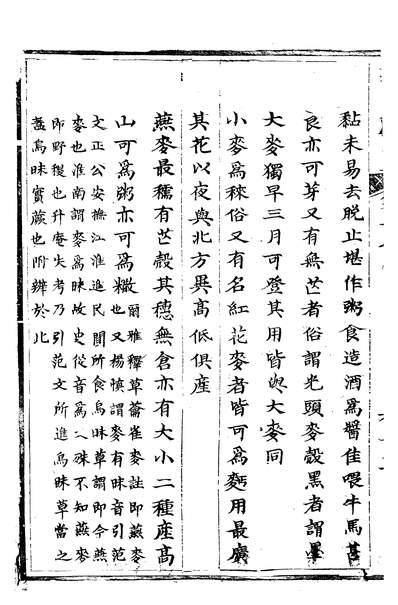 黏未易去脫止堪作粥食造酒爲醬佳喂牛馬甚
良亦可芽又有無芒者俗謂光頭麥殼黑者謂墨
大麥獨早三月可登其用皆與大麥同
小麥爲稞俗又有名紅花麥者皆可爲麵用最廣
其花以夜與北方異高低俱産
燕麥最穤有芒殼其穗無倉亦有大小二種産高
山可爲粥亦可爲糤爾雅釋草蘥雀麥註即燕麥
也又楊慎謂麥有昧音引范
文正公安撫江淮進民間所食烏昧草謂即今燕
麥也淮南謂麥爲昧故史從音爲乀昧不知燕麥
即野稷也升庵失考乃引范文所進烏昧草當之
蓋烏昧實蕨也附辨於此